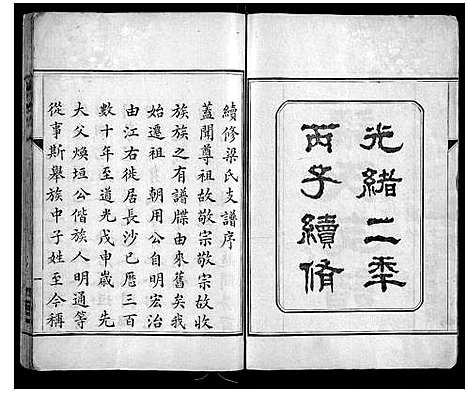 光緒二年
丙子續脩
續修梁氏支譜序
蓋聞尊祖故敬宗敬宗故收
族族之有譜牒由來舊矣我
始遷祖 朝用公自明宏治
由江右徙居長沙已歷三百
數十年至道光戊申歲 先
大父煥垣公偕族人明通等
從事斯舉族中子姓至今稱